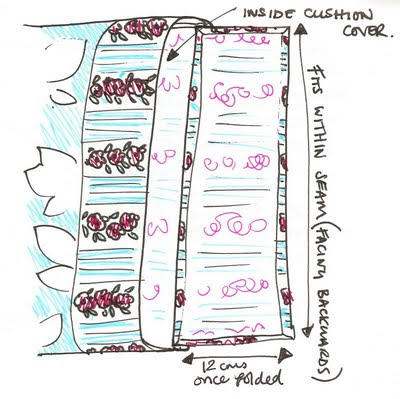 INSIDE CUSHION
COVER.
FITS WITHIN SEAM (FACING BACKWARDS)
12 cms
once folded